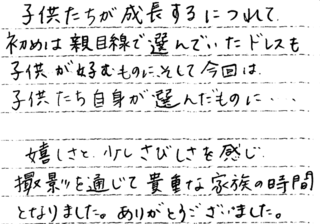 子供たちが成長するにつれて
初めは親目線で選んでいたドレスも
子供が好むものに、そして今回は
子供たち自身が選んだものに・・
嬉しさと少しさびしさを感じ
撮影を通じて貴重な家族の時間
となりました。ありがとうございました。